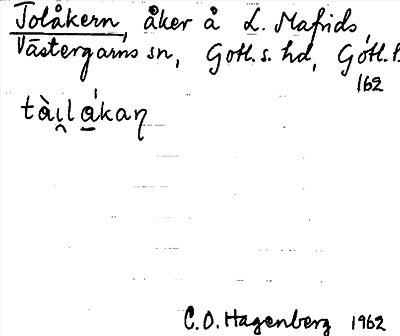 Tolåkern, åker å L. Mafrids,
Västergarns sn, Gotl. s. hd, Gotl. l.
162
tài̯lá̱kaɳ
C.O. Hagenberg 1962